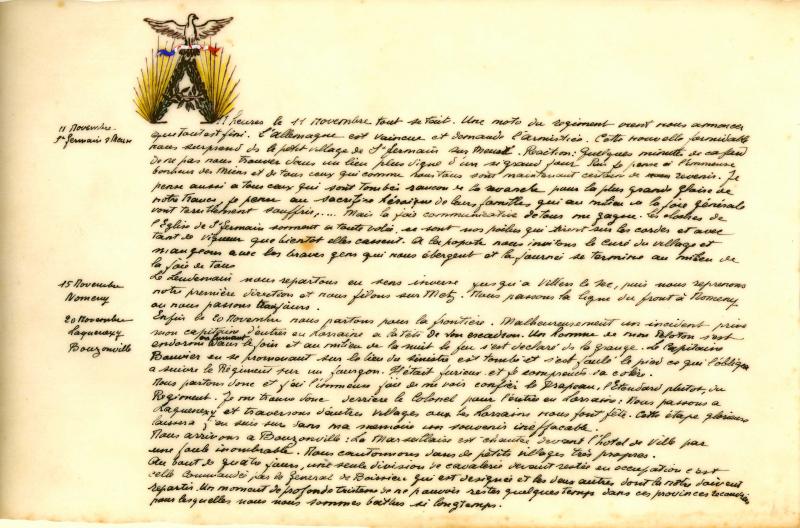 11 heures le 11 Novembre tout se tait. Une note du régiment vient nous annoncer
11 Novembre
St Germain s/ Meuse
que tout est fini. L'Allemagne est vaincue et demande l'armistice. Cette nouvelle formidable
nous surprend dans le petit village de St Germain sur Meuse. Réaction. Quelques minutes de cafard
de ne pas nous trouver dans un lieu plus digne d'un si grand jour. Puis je pense à l'immense
bonheur des miens et de tous ceux qui comme nous tous sont maintenant certains de revenir. Je
pense aussi à tous ceux qui sont tombés rançon de la revanche pour la plus grande gloire de
notre France, je pense au sacrifice héroïque de leurs familles qui au milieu de la joie générale
vont terriblement souffrir,.... Mais la joie communicative de tous me gagne. Les cloches de
l'Eglise de St Germain sonnent à toute volée, ce sont nos poilus qui tirent sur les cordes et avec
tant de vigueur que bientôt elles cassent. A la popote nous invitons le Curé du village et
mangeons avec les braves gens qui nous hébergent et la journée se termine au milieu de
la joie de tous
15 Novembre
Nomeny
Le Lendemain nous repartons en sens inverse jusqu'à Villers le Sec, puis nous reprenons
notre première direction et nous filons sur Metz. Nous passons la ligne du front à Nomeny
où nous passons jours.
20 Novembre
Laquenexy
Bouzonville
Enfin le 20 Novembre nous partons pour la frontière. Malheureusement un incident prive
mon capitaine d'entrer en Lorraine à la tête de son escadron. Un homme de mon Peloton s'est
endormi en fumant dans le foin et au milieu de la nuit le feu s'est déclaré dans la grange. Le Capitaine
Bouvier en se promenant sur le lieu du sinistre est tombé et s'est foulé le pied ce qui l'oblige
à suivre le Régiment sur un fourgon. Il était furieux et je comprends sa colère.
Nous partons donc et j'ai l'immense joie de me voir confier le Drapeau, l'Etendard plutôt, du
Régiment. Je me trouve donc derrière le Colonel pour l'entrée en Lorraine. Nous passons à
Laquenexy et traversons d'autres villages où les Lorrains nous font fête. Cette étape glorieuse
laissera j'en suis sur dans ma mémoire un souvenir ineffaçable.
Nous arrivons à Bouzonville. La Marseillaise est chantée devant l'hôtel de Ville par
une foule innombrable. Nous cantonnons dans de petits villages très propres.
Au bout de quatre jours, une seule division de cavalerie devant rester en occupation c'est
celle commandée par le Général de Boissieu qui est désignée et les deux autres dont la nôtre doivent
repartir. Un moment de profonde tristesse de ne pouvoir rester quelque temps dans ces provinces
pour lesquelles nous nous sommes battus si longtemps.